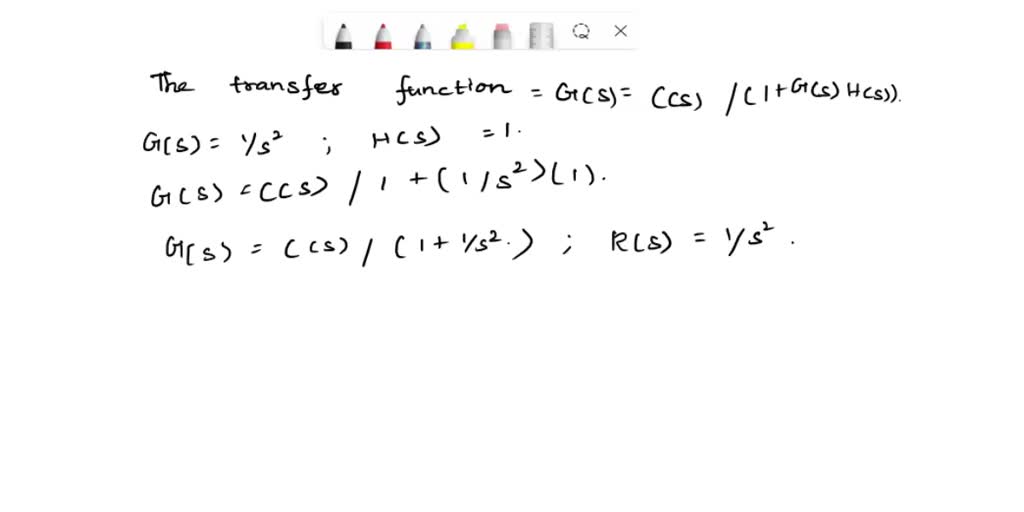 The transfer function = G(s) = C(s) / (1 + G(s) H(s)).
G(s) = 1/s² ; H(s) = 1.
G(s) = C(s) / 1 + (1/s²)(1).
G(s) = C(s) / (1 + 1/s².) ; R(s) = 1/s².